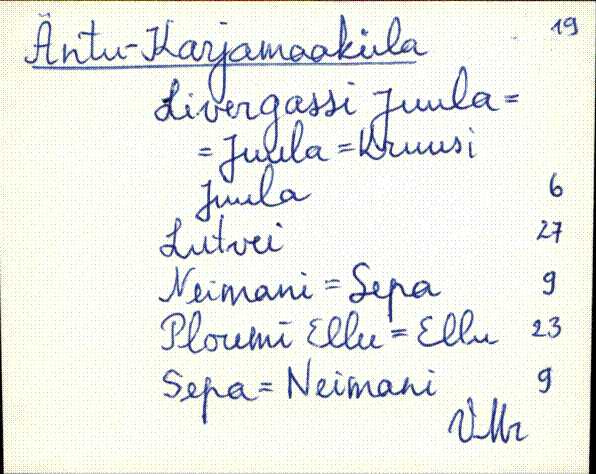 Äntu-Karjamaaküla 19
Livergassi Juula =
= Juula = Kruusi
Juula 6
Lutvei 27
Neimani = Sepa 9
Ploumi Ellu = Ellu 23
Sepa = Neimani 9
VMr